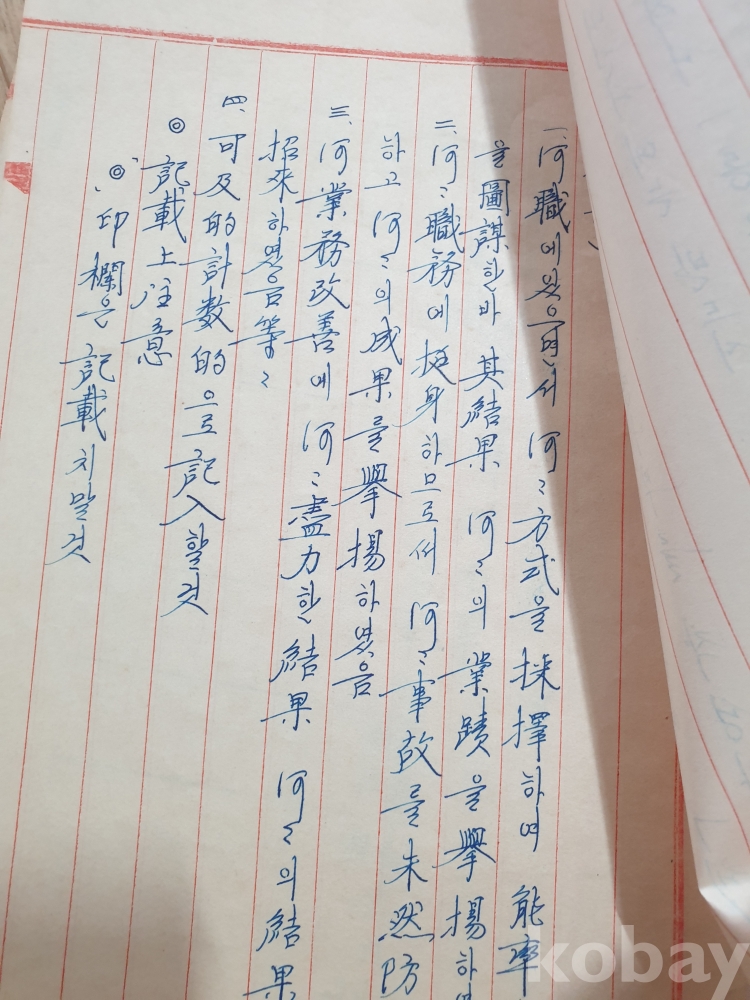 一. 何職에있으면서 何〻方式을採擇하며 能率
을圖謀한바 其結果 何〻의 業蹟을擧揚하
二. 何〻職務에挺身하므로써 何〻事故를未然防
하고 何〻의成果를擧揚하였음
三. 何業務改善에 何〻盡力한結果 何〻의結果
招來하였음等〻
四. 可及的計数的으로記入할것
◎ 記載上注意
◎ 印欄은記載치말것
kobay